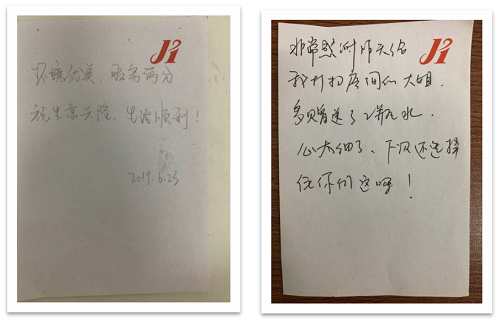 环境优美，服务满分
祝生意兴隆，生活顺利！
2019.6.23
非常感谢昨天给
我打扫房间的大姐.
多赠送了2瓶水.
心太细了、下次还选择
住你们这啊！